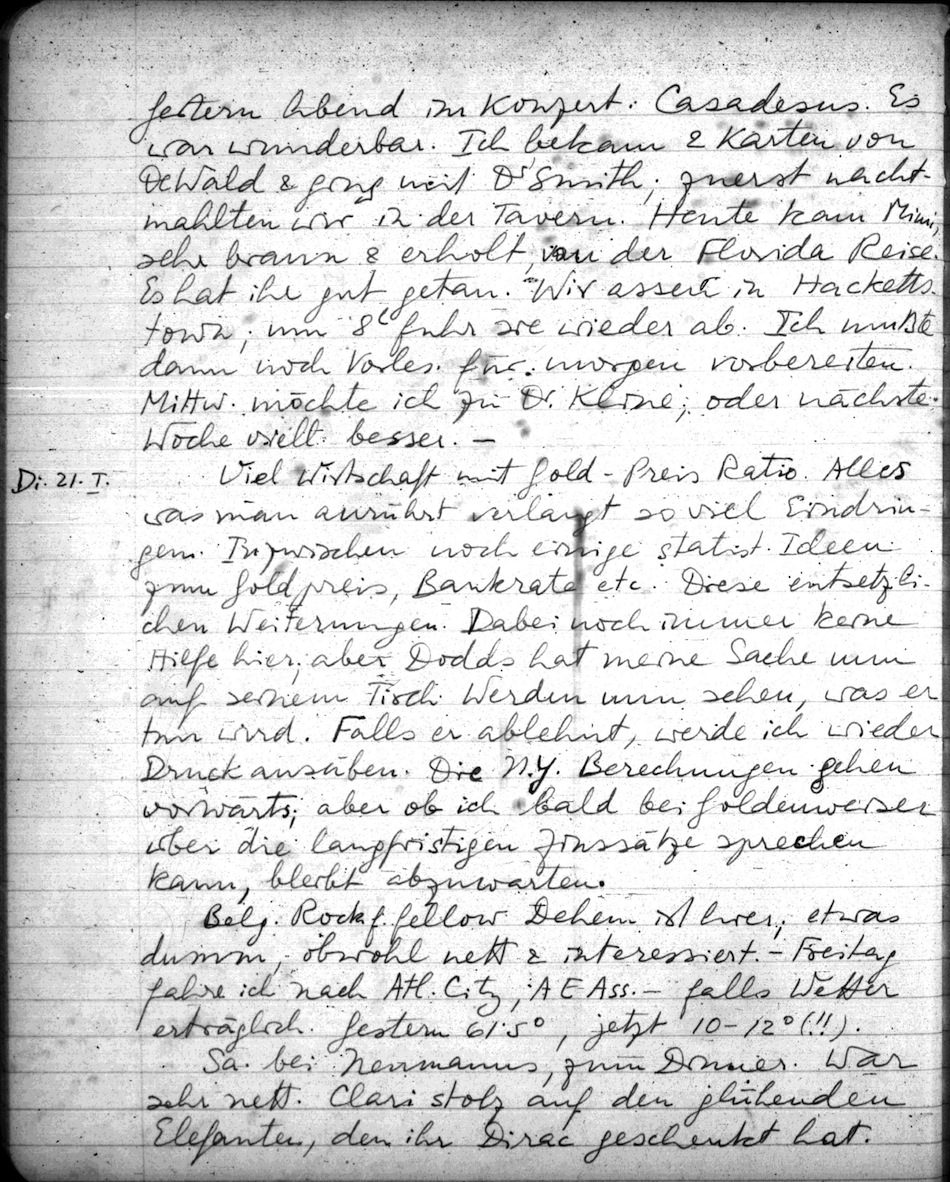 Gestern Abend im Konzert. Casadesus. Es
war wunderbar. Ich bekam 2 Karten von
DeWald & ging mit Dr Smith; zuerst nacht-
mahlten wir in der Tavern. Heute kam Mimi,
sehr braun & erholt, von der Florida Reise.
Es hat ihr gut getan. Wir assen in Hacketts-
town; um 8h fuhr sie wieder ab. Ich mußte
dann noch Vorles. für morgen vorbereiten.
Mittw. möchte ich zu Dr. Kline; oder nächste
Woche viell. besser. —
Di. 21. I. Viel Wirtschaft mit Gold-Preis Ratio. Alles
was man anrührt verlangt so viel Eindrin-
gen. Inzwischen noch einige statist. Ideen
zum Goldpreis, Bankrate etc. Diese entsetzli-
chen Weiterungen. Dabei noch immer keine
Hilfe hier; aber Dodds hat meine Sache nun
auf seinem Tisch. Werden nun sehen, was er
tun wird. Falls er ablehnt, werde ich wieder
Druck ausüben. Die N.Y. Berechnungen gehen
vorwärts; aber ob ich bald bei Goldenweiser
über die langfristigen Zinssätze sprechen
kann, bleibt abzuwarten.
Belg. Rockf. fellow Dehem ist hier; etwas
dumm, obwohl nett & interessiert. – Freitag
fahre ich nach Atl. City, A E Ass. – falls Wetter
erträglich. Gestern 61.5°, jetzt 10–12° (!!).
Sa. bei Neumanns, zum Dinner. War
sehr nett. Clari stolz auf den glühenden
Elefanten, den ihr Dirac geschenkt hat.